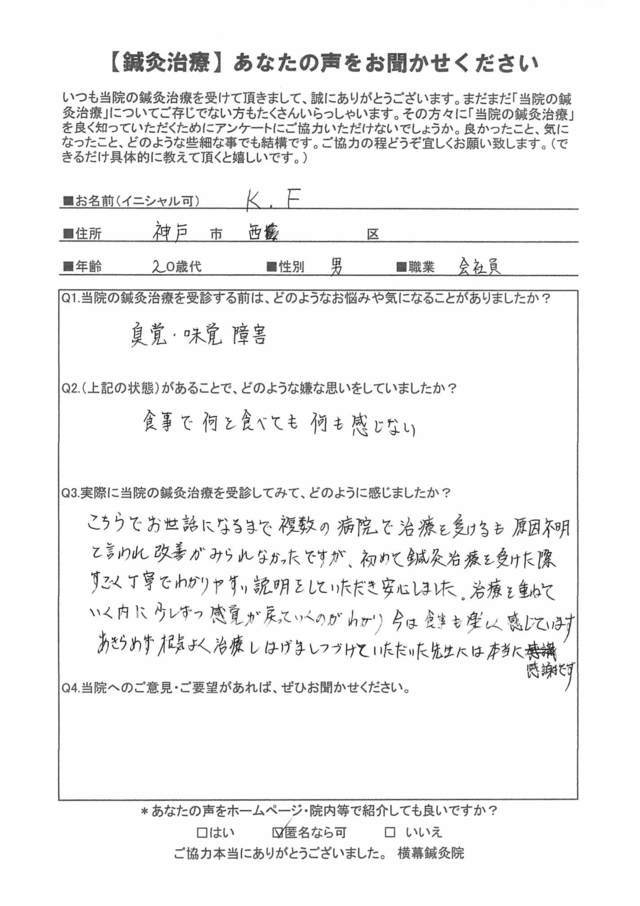 【鍼灸治療】あなたの声をお聞かせください
いつも当院の鍼灸治療を受けて頂きまして、誠にありがとうございます。まだまだ「当院の鍼
灸治療」についてご存じでない方もたくさんいらっしゃいます。その方々に「当院の鍼灸治療」
を良く知っていただくためにアンケートにご協力いただけないでしょうか。良かったこと、気に
なったこと、どのような些細な事でも結構です。ご協力の程どうぞ宜しくお願い致します。（で
きるだけ具体的に教えて頂くと嬉しいです。）
■お名前（イニシャル可） K.F
■住所 神戸 市 西 区
■年齢 20歳代 ■性別 男 ■職業 会社員
Q1.当院の鍼灸治療を受診する前は、どのようなお悩みや気になることがありましたか？
臭覚・味覚 障害
Q2.（上記の状態）があることで、どのような嫌な思いをしていましたか？
食事で何を食べても何も感じない
Q3.実際に当院の鍼灸治療を受診してみて、どのように感じましたか？
こちらでお世話になるまで複数の病院で治療を受けるも原因不明
と言われ改善がみられなかったですが、初めて鍼灸治療を受けた際
すごく丁寧でわかりやすい説明をしていただき安心しました。治療を重ねて
いく内に少しずつ感覚が戻っていくのがわかり今は食事も楽しく感じています
あきらめず根気よく治療しはげましつづけていただいた先生には本当に
感謝です
Q4.当院へのご意見・ご要望があれば、ぜひお聞かせください。
＊あなたの声をホームページ・院内等で紹介しても良いですか？
□はい ☑匿名なら可 □ いいえ
ご協力本当にありがとうございました。 横幕鍼灸院